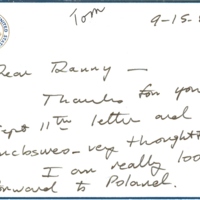 Tom
9-15-
Dear Danny —
Thanks for you
Sept 11th letter and
nclosures – very thought
I am really loo
orward to Poland.